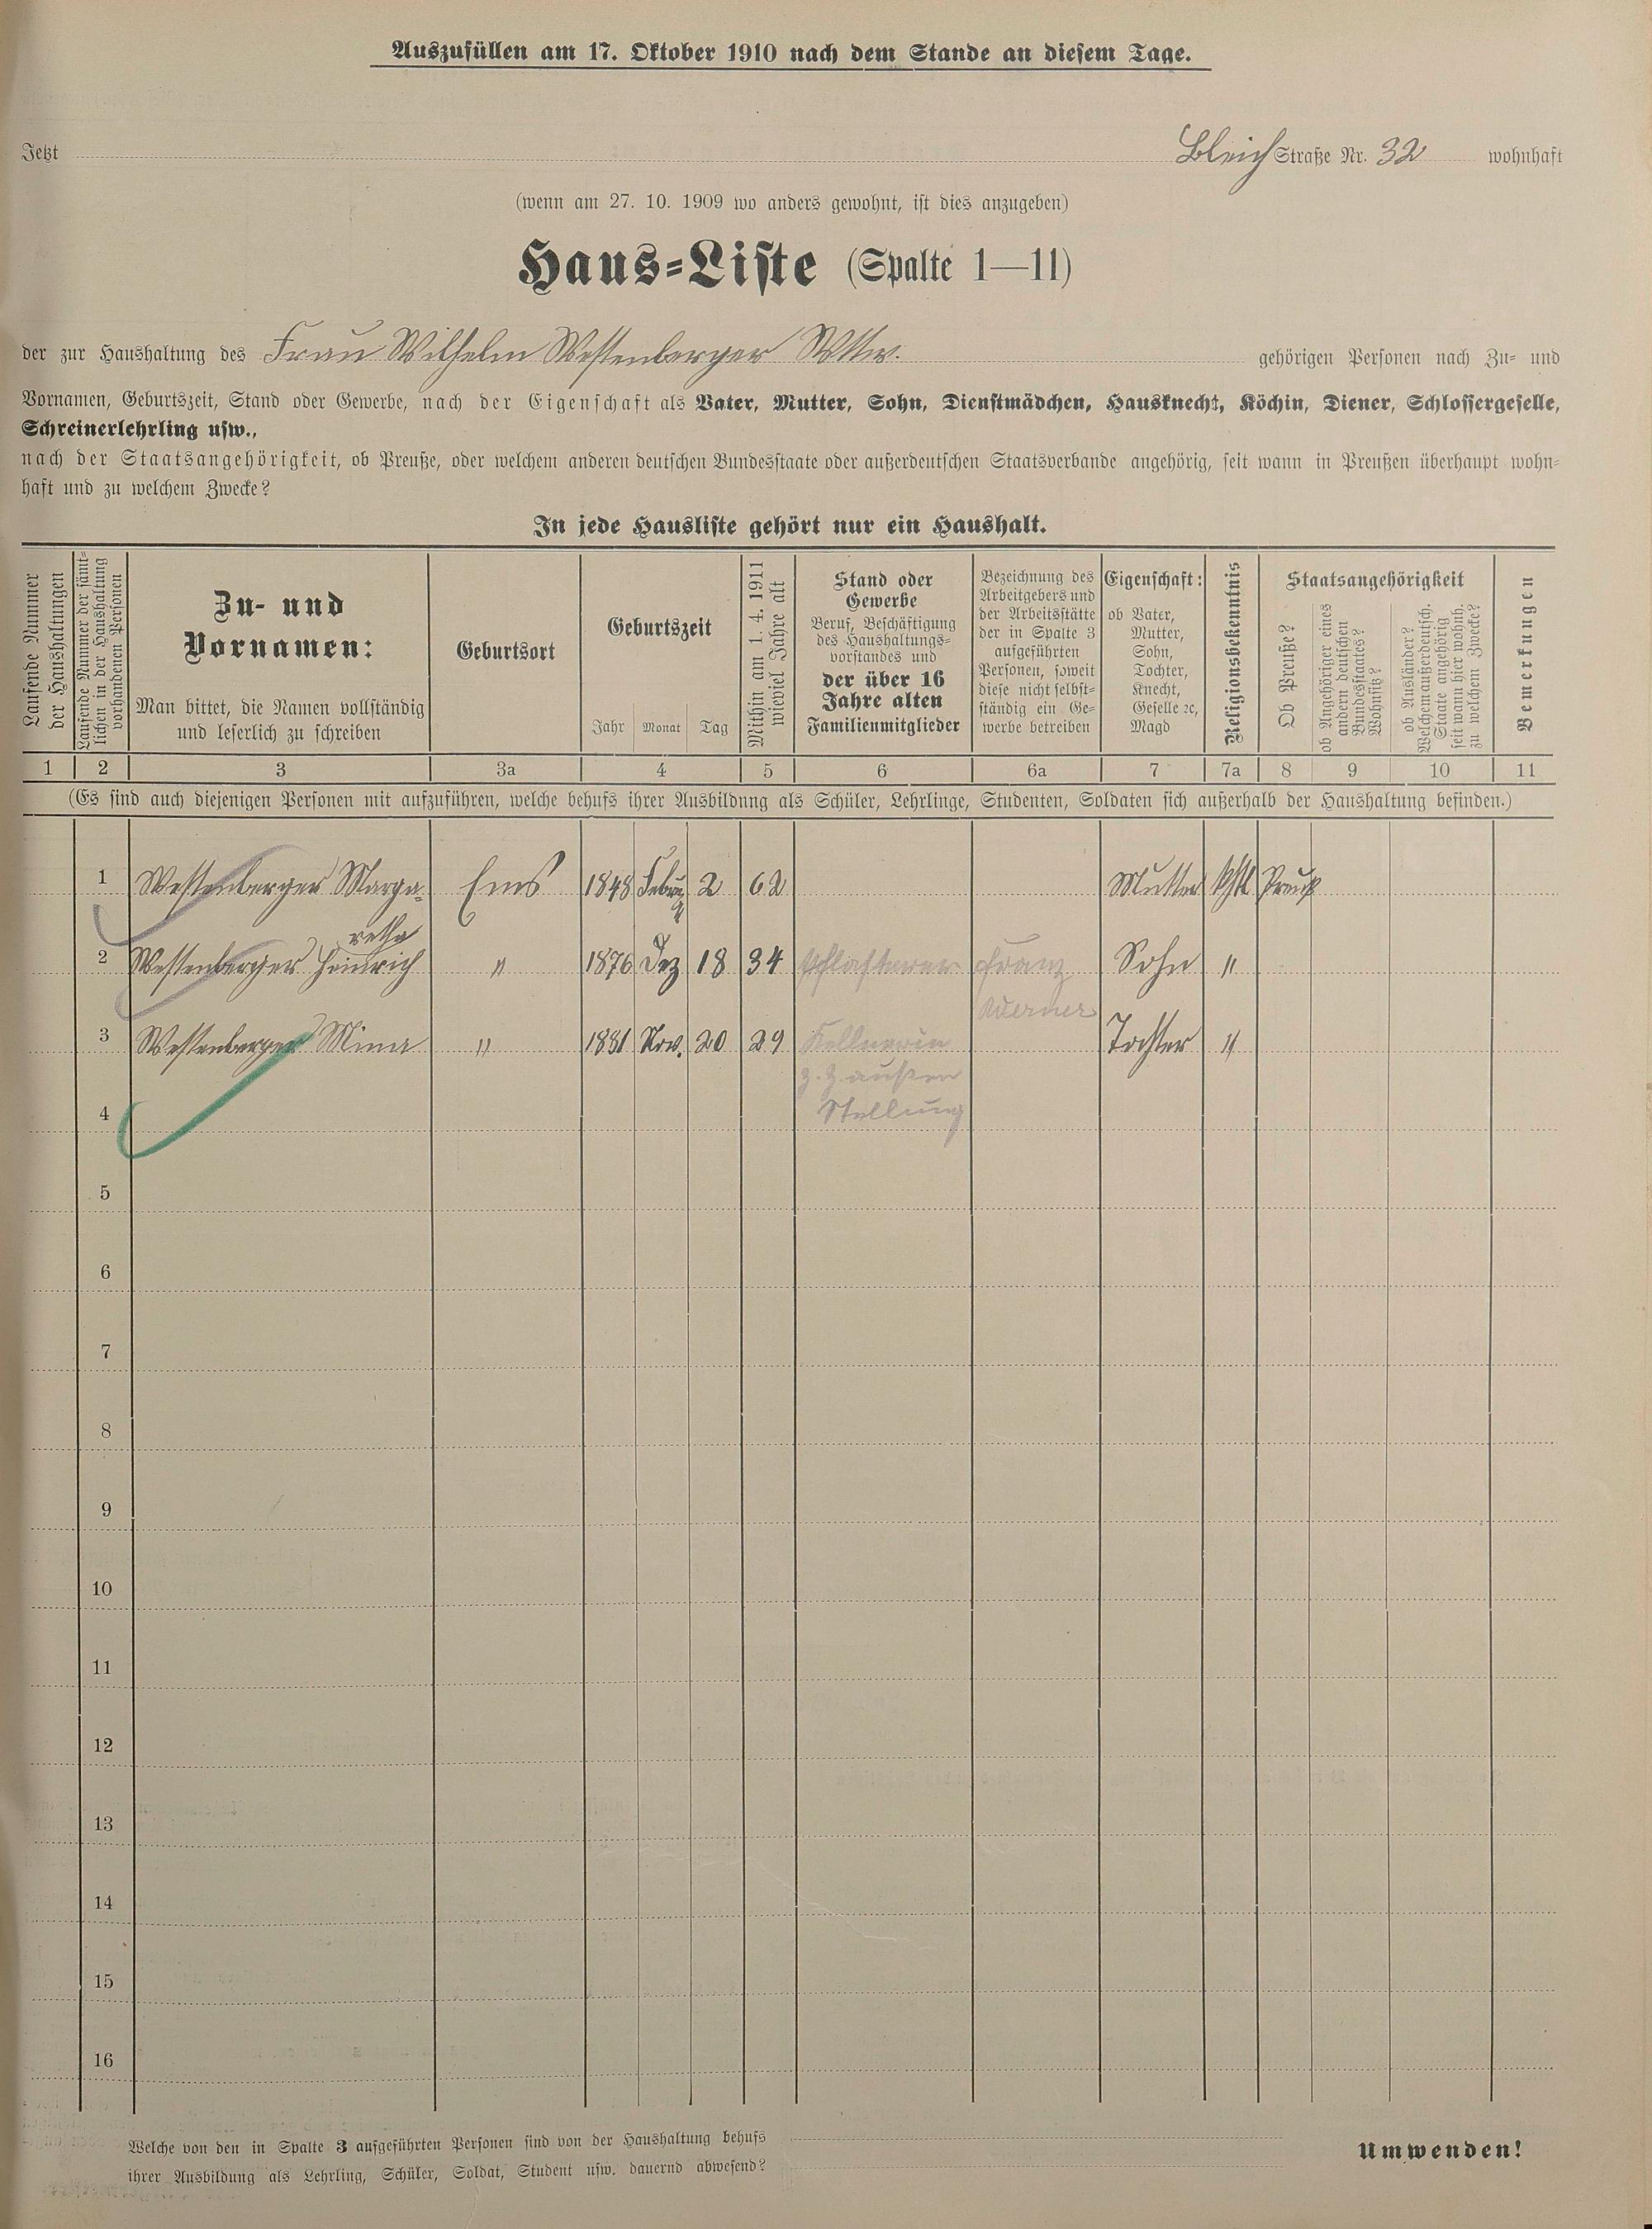 Auszufüllen am 17. Oktober 1910 nach dem Stande an diesem Tage.
Jetzt Bleich Straße Nr. 32 wohnhaft
(wenn am 27. 10. 1909 wo anders gewohnt, ist dies anzugeben)
Haus=Liste (Spalte 1—11)
der zur Haushaltung des Frau Wilhelm Westenberger Wttw. gehörigen Personen nach Zu= und
Vornamen, Geburtszeit, Stand oder Gewerbe, nach der Eigenschaft als Vater, Mutter, Sohn, Dienstmädchen, Hausknecht, Köchin, Diener, Schlossergeselle,
Schreinerlehrling usw.,
nach der Staatsangehörigkeit, ob Preuße, oder welchem anderen deutschen Bundesstaate oder außerdeutschen Staatsverbande angehörig, seit wann in Preußen überhaupt wohn=
haft und zu welchem Zwecke?
In jede Hausliste gehört nur ein Haushalt.
Laufende Nummer
der Haushaltungen
Laufende Nummer der sämt=
lichen in der Haushaltung
vorhandenen Personen
Zu- und
Vornamen:
Man bittet, die Namen vollständig
und leserlich zu schreiben
Geburtsort
Geburtszeit
Jahr Monat Tag
Mithin am 1. 4. 1911
wieviel Jahre alt
Stand oder
Gewerbe
Beruf, Beschäftigung
des Haushaltungs=
vorstandes und
der über 16
Jahre alten
Familienmitglieder
Bezeichnung des
Arbeitgebers und
der Arbeitsstätte
der in Spalte 3
aufgeführten
Personen, soweit
diese nicht selbst=
ständig ein Ge=
werbe betreiben
Eigenschaft:
ob Vater,
Mutter,
Sohn,
Tochter,
Knecht,
Geselle ꝛc,
Magd
Religionsbekenntnis
Staatsangehörigkeit
Ob Preuße?
ob Angehöriger eines
andern deutschen
Bundesstaates?
Wohnsitz?
ob Ausländer?
Welchem außerdeutsch.
Staate angehörig
seit wann hier wohnh.
zu welchem Zwecke?
Bemerkungen
1 2 3 3a 4 5 6 6a 7 7a 8 9 10 11
(Es sind auch diejenigen Personen mit aufzuführen, welche behufs ihrer Ausbildung als Schüler, Lehrlinge, Studenten, Soldaten sich außerhalb der Haushaltung befinden.)
1 Westenberger Marga= Ems 1848 Febru 2 62 Mutter kthl Preuß
retha
2 Westenberger Heinrich " 1876 Dez 18 34 Pflasterer Franz Sohn "
Werner
3 Westenberger Mina " 1881 Nov. 20 29 Kellnerin Tochter "
z. Z. außer
4 Stellung
5
6
7
8
9
10
11
12
13
14
15
16
Welche von den in Spalte 3 aufgeführten Personen sind von der Haushaltung behufs
ihrer Ausbildung als Lehrling, Schüler, Soldat, Student usw. dauernd abwesend?
Umwenden!